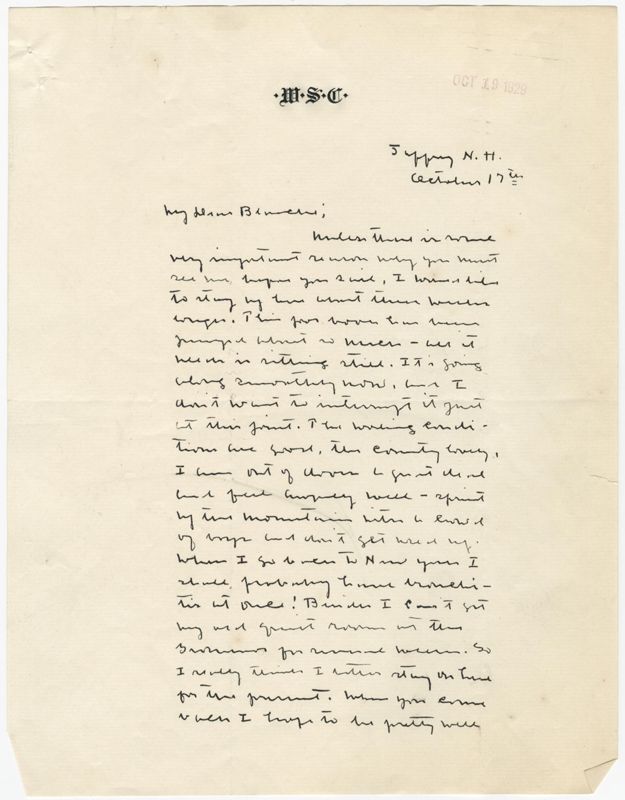 ·W·S·C·
OCT 19 1929
Jaffrey N.H.
October 17th
My dear Blanche;
Unless there is some
very important reason why you must
see me, before you sail, I would like
to stay up here about three weeks
longer. This poor novel has been
jumped about so much - all it
needs is sitting still. It is going
along smoothly now, and I
don't want to interrupt it just
at this point. The working condi-
tions are good, the country lovely,
I am out of doors a great deal
and feel awfully well - sprint
up the mountain with a crowd
of boys and don't get used up.
When I go back to New York I
shall, probably have bronchi-
tis at once! Besides I can't get
my old quiet room at the
Grosvenor for several weeks. So
I really think I better stay on here
for the present. When you come
back I hope to be pretty well